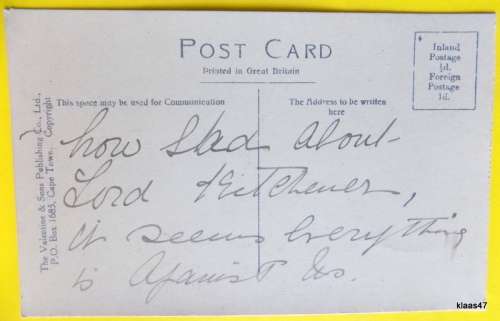 POST CARD
Printed in Great Britain
Inland
Postage
½d.
Foreign
Postage
1d.
This space may be used for Communication
The Address to be written
here
The Valentine & Sons Publishing Co., Ltd.,
P.O. Box 1685, Cape Town. Copyright
how sad about
Lord Kitchener,
it seems everything
is against us.
klaas47